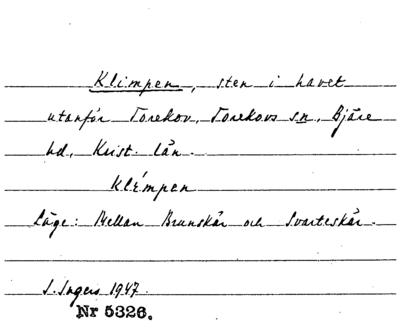 Klimpen, sten i havet
utanför Torekov, Torekovs sn, Bjäre
hd, Krist. län.
Klémpen
Läge: Mellan Brunskär och Svarteskär.
I. Ingers 1947.
Nr 5326.